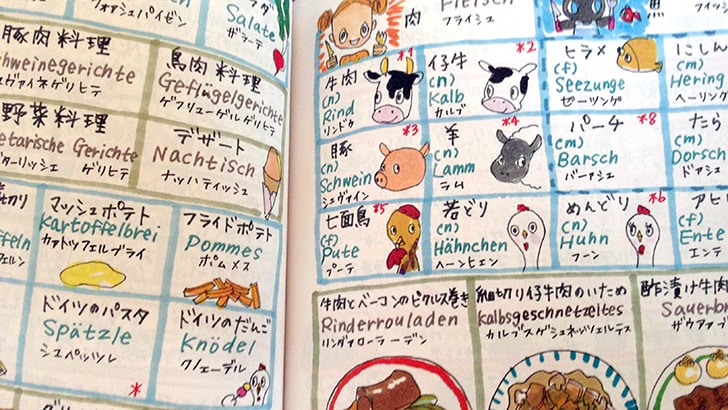 Salate
ザラーテ
豚肉料理
鳥肉料理
Geflügelgerichte
ゲフリューゲルゲリヒテ
野菜料理
Gerichte
ゲリヒテ
デザート
Nachtisch
ナッハティッシュ
マッシュポテト
Kartoffelbrei
カァトッフェルブライ
フライドポテト
Pommes
ポムメス
ドイツのパスタ
Spätzle
シュペッツレ
ドイツのだんご
Knödel
クノェーデル
*
Yum
肉
Fleisch
フライシュ
牛肉
*1
(n)
Rind
リンドゥ
仔牛
*2
(n)
Kalb
カルプ
豚
*3
(n)
Schwein
シュヴァイン
羊
*4
(n)
Lamm
ラム
七面鳥
*5
(f)
Pute
プーテ
若どり
(n)
Hähnchen
ヘーンヒェン
めんどり
*6
(n)
Huhn
フーン
ヒラメ
(f)
Seezunge
ゼーツンゲ
にしん
(m)
Hering
ヘーリング
パーチ
*8
(m)
Barsch
バーアシュ
たら
(m)
Dorsch
ドアシュ
(f)
Ente
エンテ
牛肉とベーコンのピクルス巻き
Rinderrouladen
リンダァローラーデン
細切り仔牛肉のいため
kalbsgeschnetzeltes
カルプスゲシュネッツェルテス
酢漬け牛肉